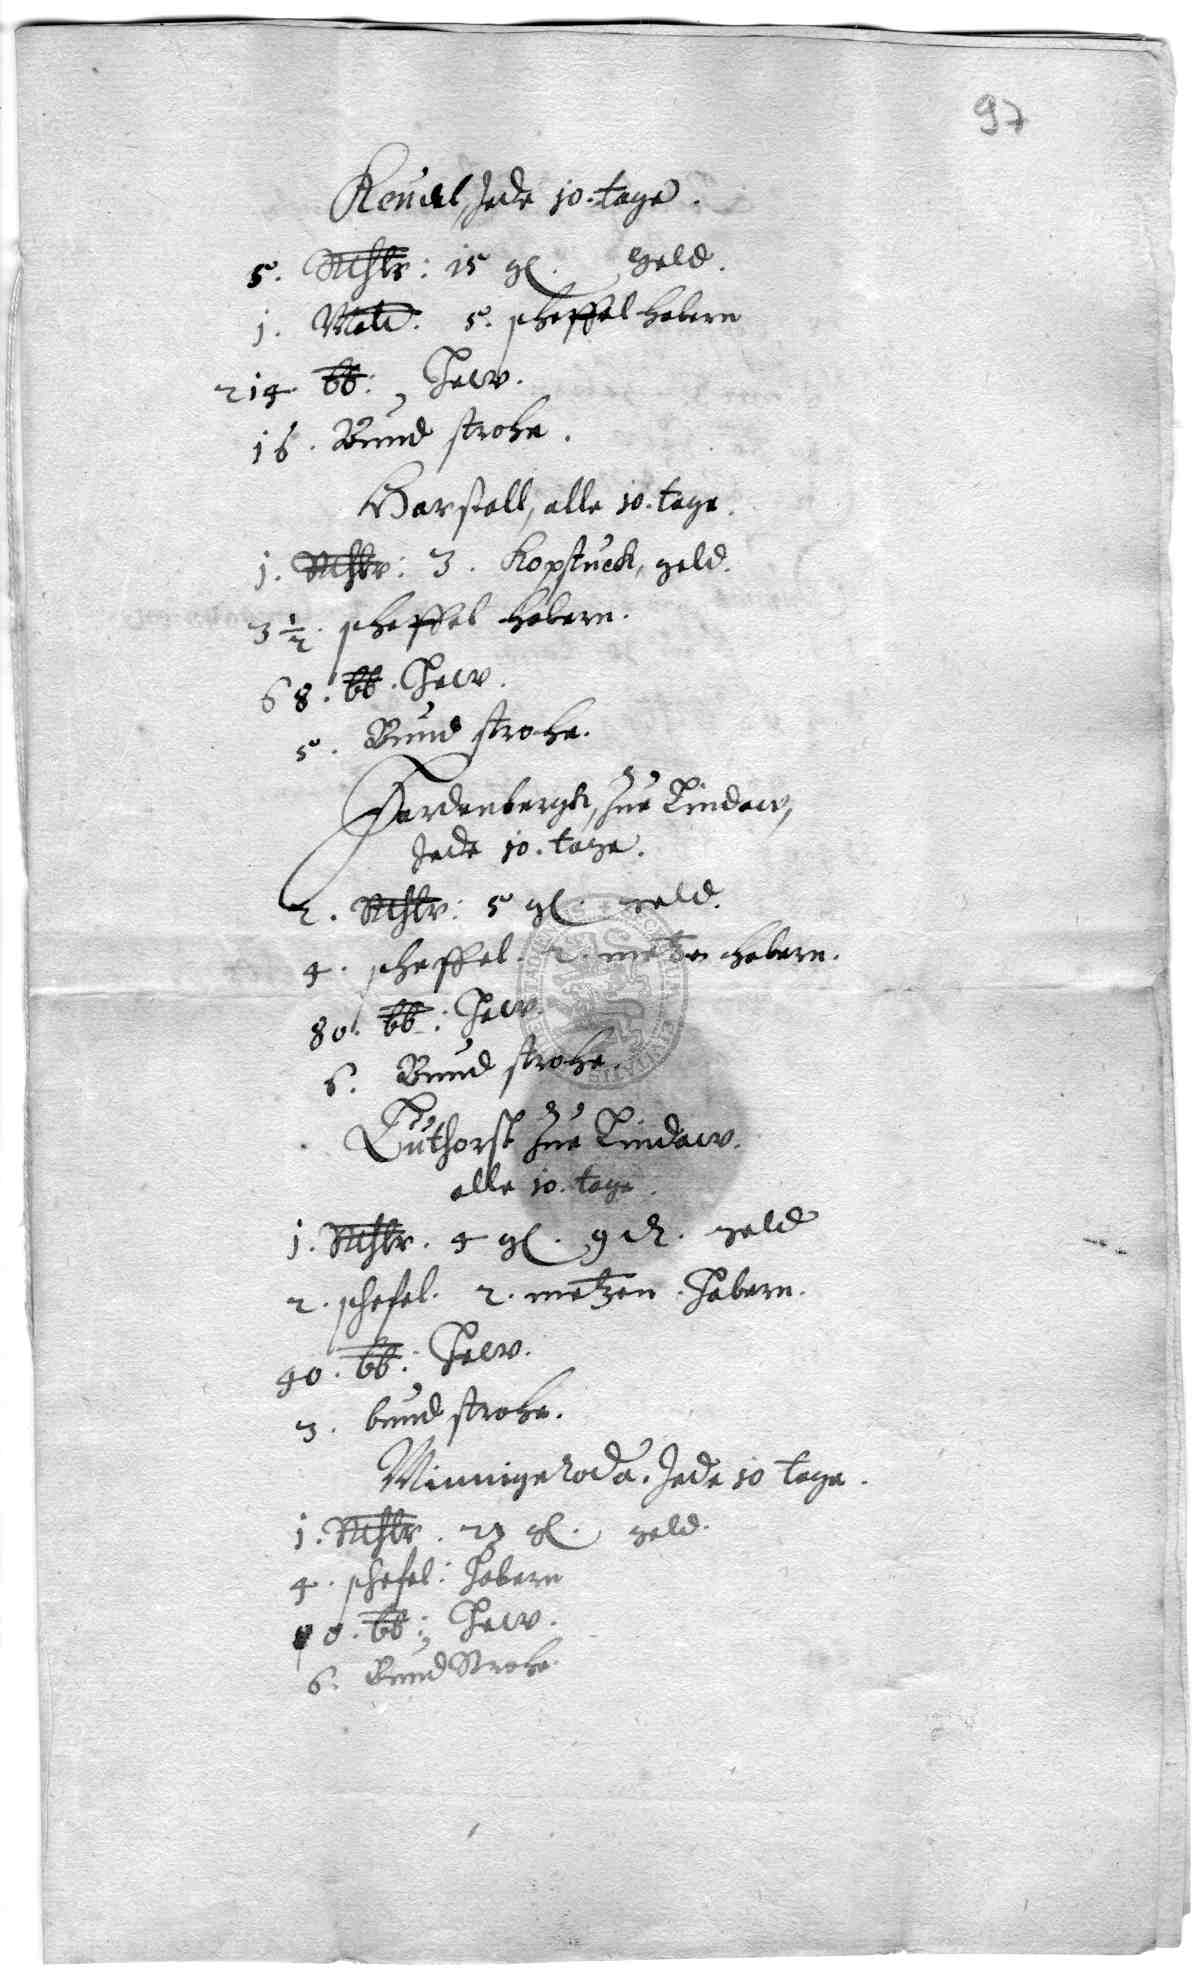 97
Keudel, Jede 10. tage.
5. Rthlr: 15 gl. geld.
1. Malt. 5. scheffel habern
214. lb: Hew.
16. Bund strohe.
Harstall, alle 10. tage.
1. Rthlr: 3. Kopstuck, geld.
3 1/2. scheffel habern.
68. lb. Hew.
5. Bund strohe.
Hardenbergk, Zue Lindaw,
Jede 10. tage.
2. Rthlr: 5 gl. geld.
4. scheffel. 2. metzen habern.
80. lb: Hew.
6. Bund strohe.
Luthorst Zue Lindaw.
alle 10. tage.
1. Rthlr. 4 gl. 9 d. geld
2. schefel. 2. metzen. Habern.
40. lb: Hew.
3. bund strohe.
Minnigeroda. Jede 10 tage.
1. Rthlr. 23 gl. geld.
4. schefel: Habern
lb: Hew.
6. Bund Strohe.